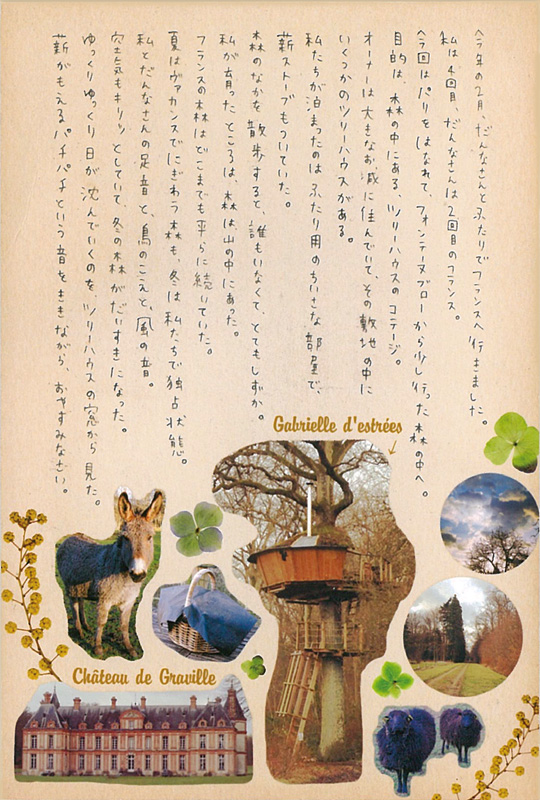 今年の2月、だんなさんとふたりでフランスへ行きました。
私は4回目、だんなさんは2回目のフランス。
今回はパリをはなれて、フォンテーヌブローから少し行った森の中へ。
目的は、森の中にある、ツリーハウスのコテージ。
オーナーは大きなお城に住んでいて、その敷地の中に
いくつかのツリーハウスがある。
私たちが泊まったのはふたり用のちいさな部屋で、
薪ストーブもついていた。
森のなかを散歩すると、誰もいなくて、とてもしずか。
私が育ったところは、森は山の中にあった。
フランスの森はどこまでも平らに続いていた。
夏はヴァカンスでにぎわう森も、冬は私たちで独占状態。
私とだんなさんの足音と、鳥のこえと、風の音。
空気もキリッとしていて、冬の森がだいすきになった。
ゆっくりゆっくり日が沈んでいくのを、ツリーハウスの窓から見た。
薪がもえるパチパチという音をききながら、おやすみなさい。
Gabrielle d'estrées
Château de Graville